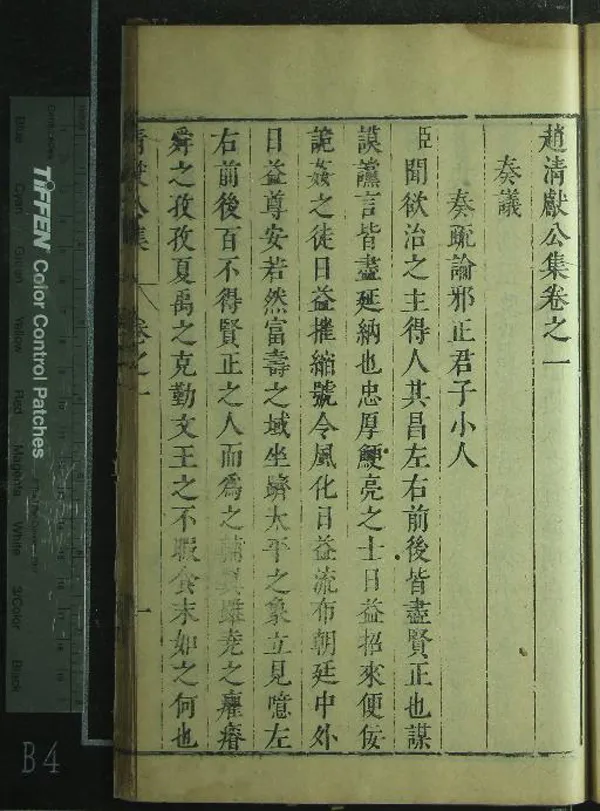 趙清獻公集卷之一
奏議
奏疏論邪正君子小人
臣聞欲治之主得人其昌左右前後皆盡賢正也謀
謨讜言皆盡延納也忠厚鯁亮之士日益招來便佞
詭姦之徒日益摧縮號令風化日益流布朝廷中外
日益尊安若然富壽之域坐躋太平之象立見噫左
右前後百不得賢正之人而為之輔翼雖堯之癯瘠
舜之孜孜夏禹之克勤文王之不暇食末如之何也
清獻公集 卷之一 一
TIFFEN Color Control Patches
Blue
Cyan
Green
Yellow
Red
Magenta
White
3/Color
Black
B4